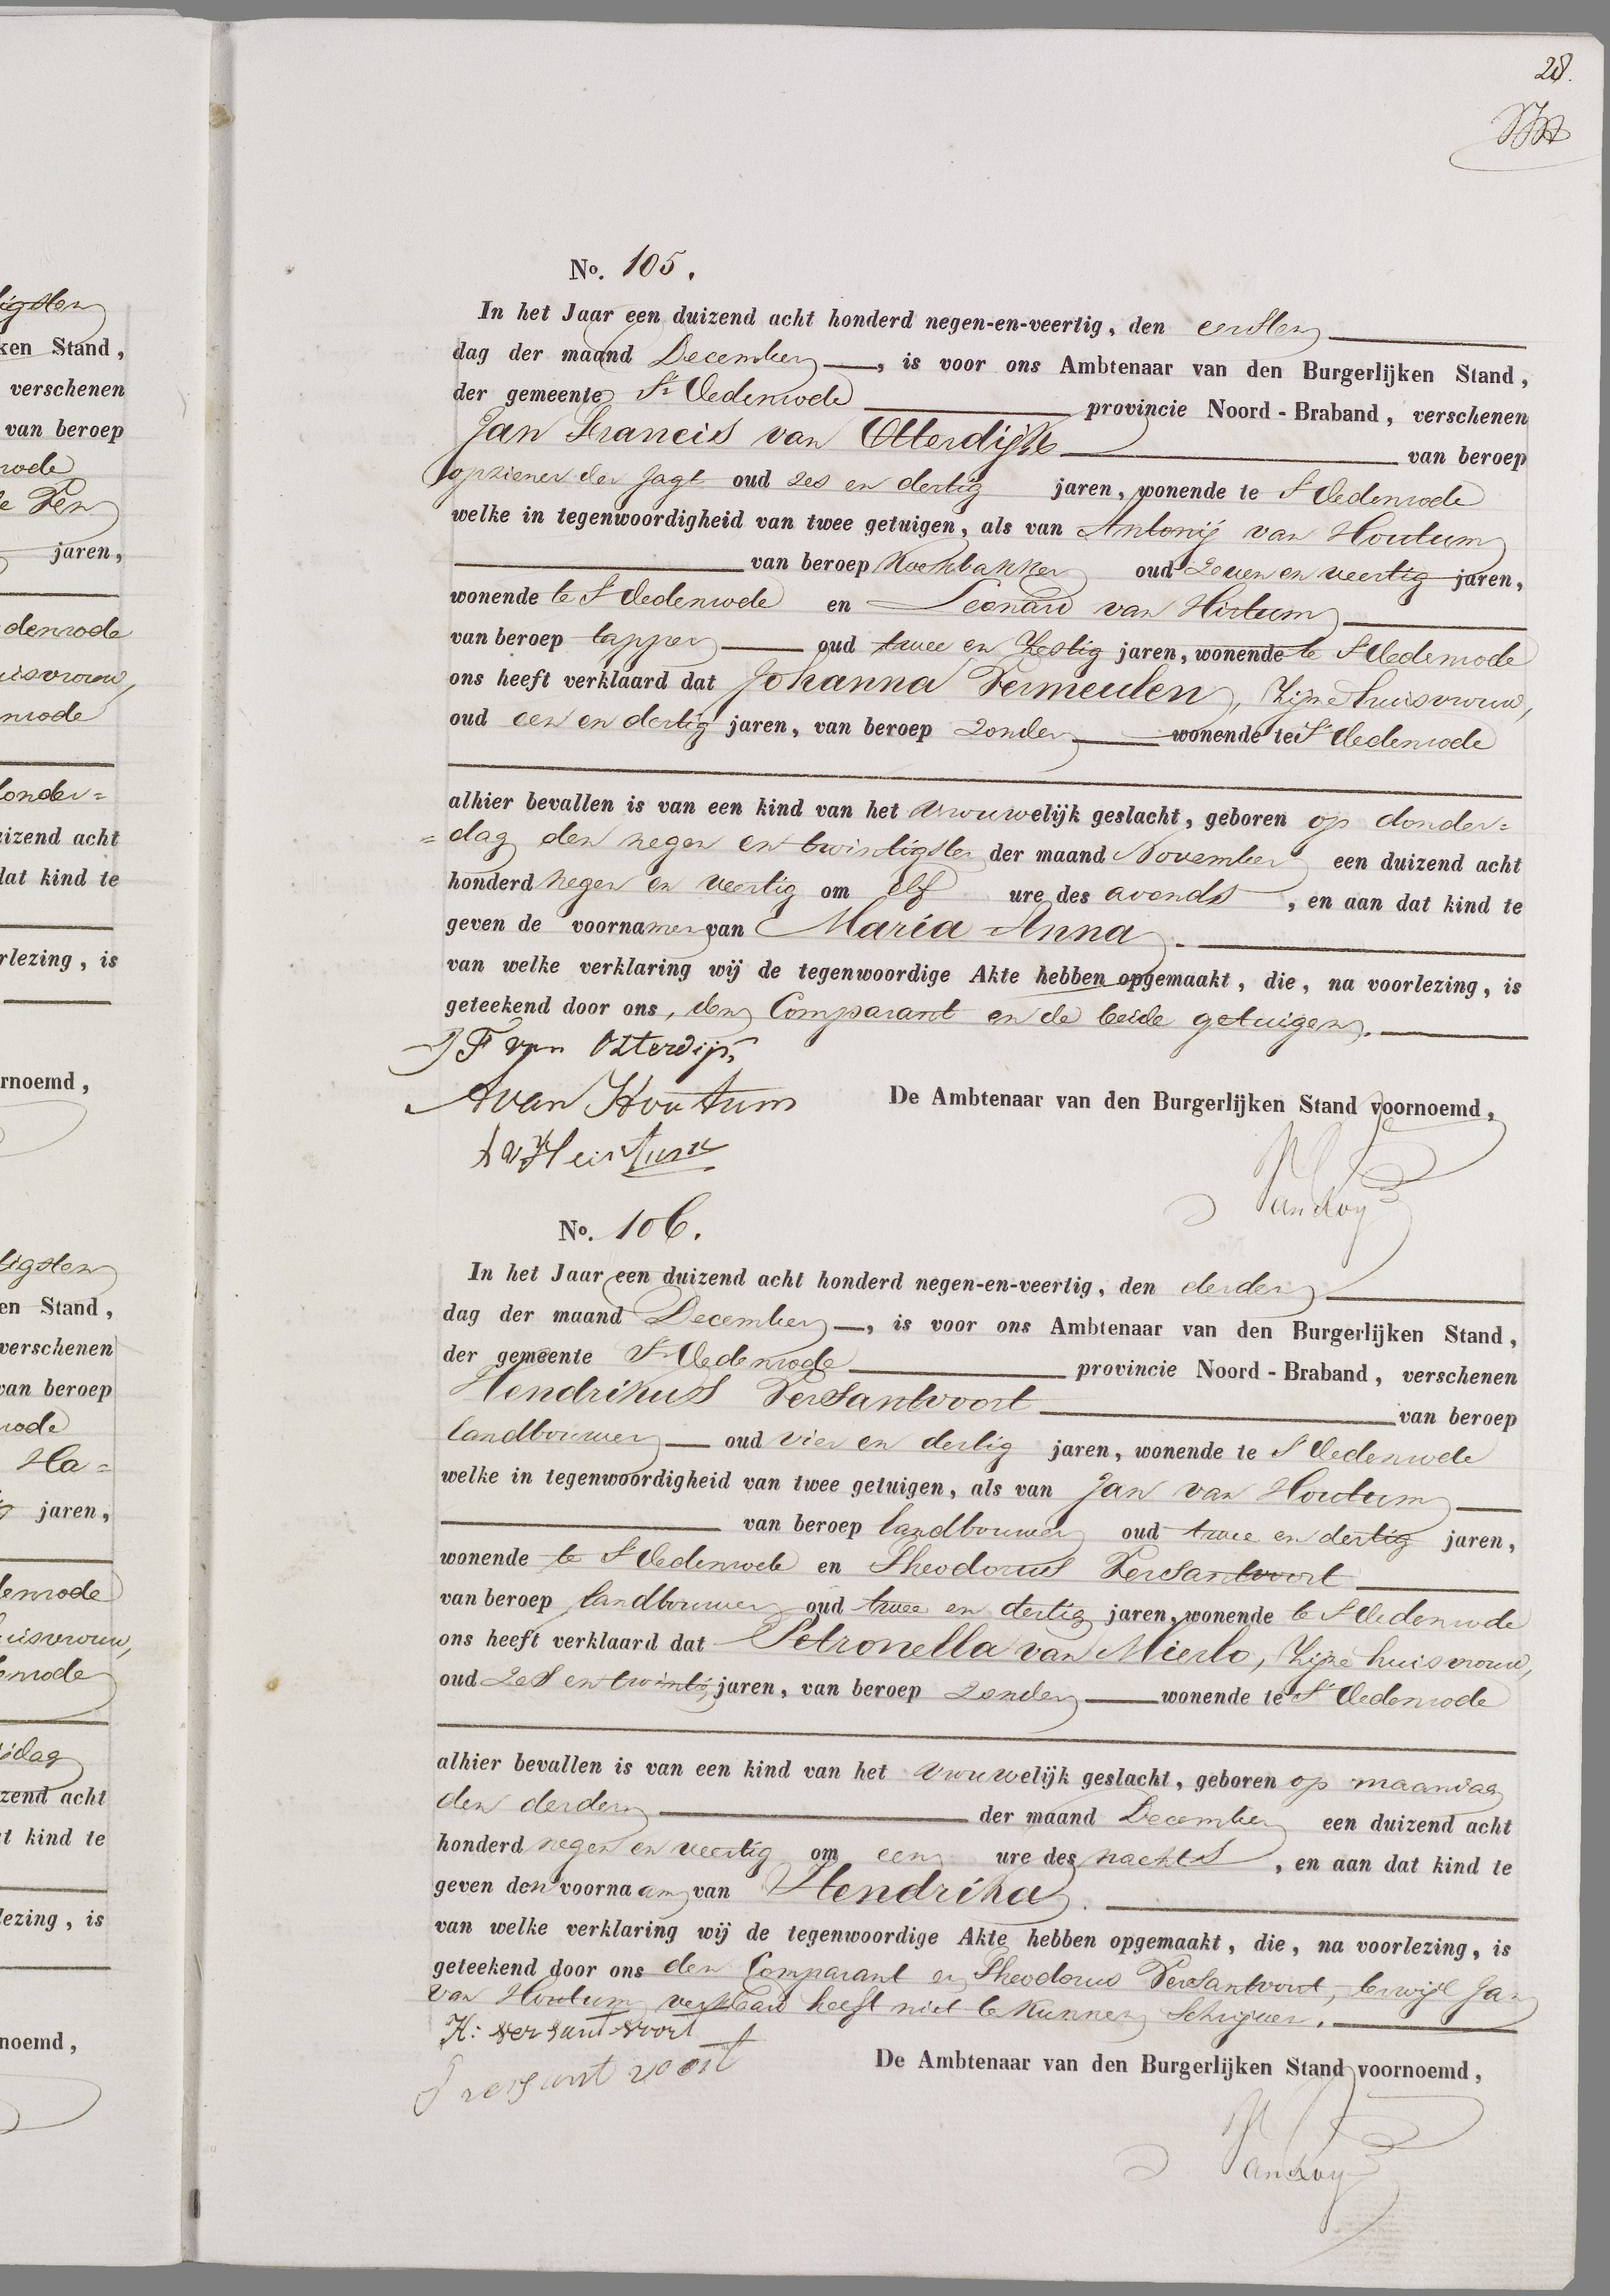 28.
No. 105.
In het Jaar een duizend acht honderd negen-en-veertig, den eersten
dag der maand December, is voor ons Ambtenaar van den Burgerlijken Stand,
der gemeente St Oedenrode provincie Noord-Braband, verschenen
Jan Francis van Otterdijk van beroep
opziener der Jagt oud zes en dertig jaren, wonende te St Oedenrode
welke in tegenwoordigheid van twee getuigen, als van Antonij van Houtum
van beroep Koekbakker oud zeven en veertig jaren,
wonende te St Oedenrode en Leonard van Hirtum
van beroep tapper oud twee en Zestig jaren, wonende te St Oedenrode
ons heeft verklaard dat Johanna Vermeulen, Zijne huisvrouw,
oud een en dertig jaren, van beroep zonder wonende te St Oedenrode
alhier bevallen is van een kind van het vrouwelijk geslacht, geboren op donder=
=dag den negen en twintigsten der maand November een duizend acht
honderd negen en veertig om elf ure des avonds, en aan dat kind te
geven de voornamen van Maria Anna.
van welke verklaring wij de tegenwoordige Akte hebben opgemaakt, die, na voorlezing, is
geteekend door ons, den Comparant en de beide getuigen.
J F van Otterdijk
A van Houtum
De Ambtenaar van den Burgerlijken Stand voornoemd,
L v Heirtum
No. 106.
In het Jaar een duizend acht honderd negen-en-veertig, den derden
dag der maand December, is voor ons Ambtenaar van den Burgerlijken Stand,
der gemeente St Oedenrode provincie Noord-Braband, verschenen
Hendrikus VerSantvoort van beroep
landbouwer oud vier en dertig jaren, wonende te St Oedenrode
welke in tegenwoordigheid van twee getuigen, als van Jan van Houtum
van beroep landbouwer oud twee en dertig jaren,
wonende te St Oedenrode en Theodorus VerSantvoort
van beroep landbouwer oud twee en dertig jaren, wonende te St Oedenrode
ons heeft verklaard dat Petronella van Mierlo, Zijne huisvrouw,
oud zes en twintig jaren, van beroep zonder wonende te St Oedenrode
alhier bevallen is van een kind van het vrouwelijk geslacht, geboren op maandag
den derden der maand December een duizend acht
honderd negen en veertig om een ure des nachts, en aan dat kind te
geven den voornaam van Hendrika.
van welke verklaring wij de tegenwoordige Akte hebben opgemaakt, die, na voorlezing, is
geteekend door ons den Comparant en Theodorus VerSantvoort, terwijl Jan
van Houtum verklaard heeft niet te kunnen Schrijven.
H: versantvoort
De Ambtenaar van den Burgerlijken Stand voornoemd,
T versantvoort